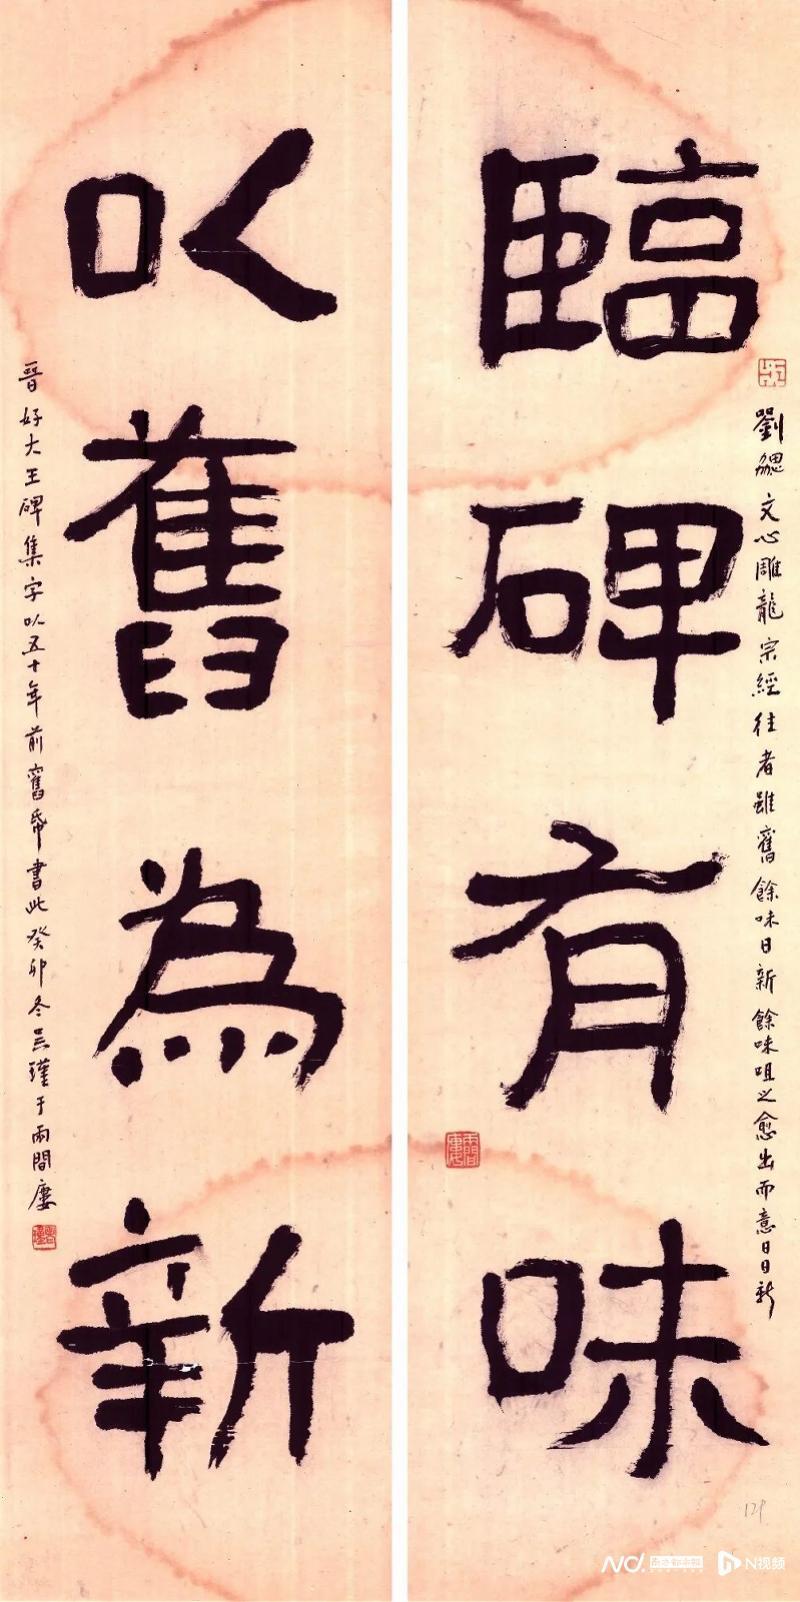 臨碑有味
劉勰文心雕龍宗經往者雖舊餘味日新餘味咀之愈出而意日日新
以舊為新
晉好大王碑集字以五十年前舊帋書此癸卯冬吴瑾于兩間廔
129
N视频